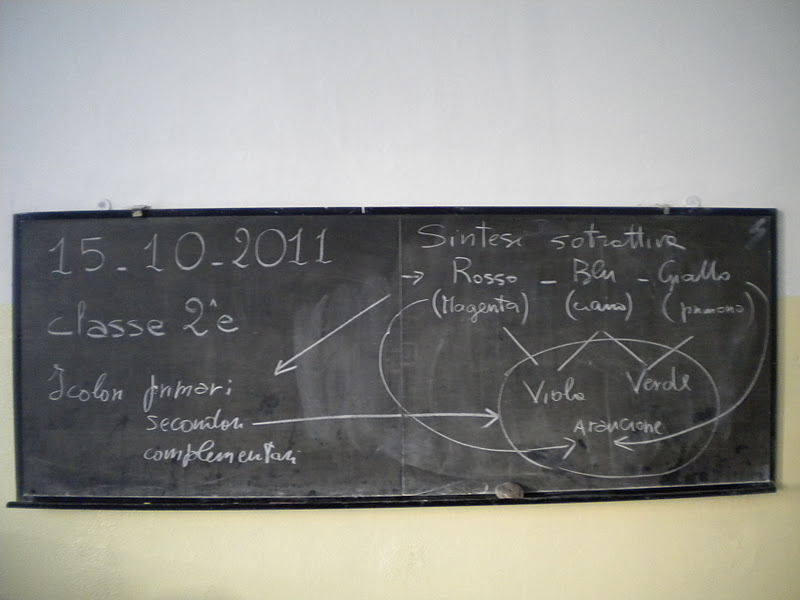 15-10-2011
classe 2ªe
I colori primari
secondari
complementari
Sintesi sotrattiva
→ Rosso - Blu - Giallo
(Magenta) (ciano) (primario)
Viola Verde
Arancione